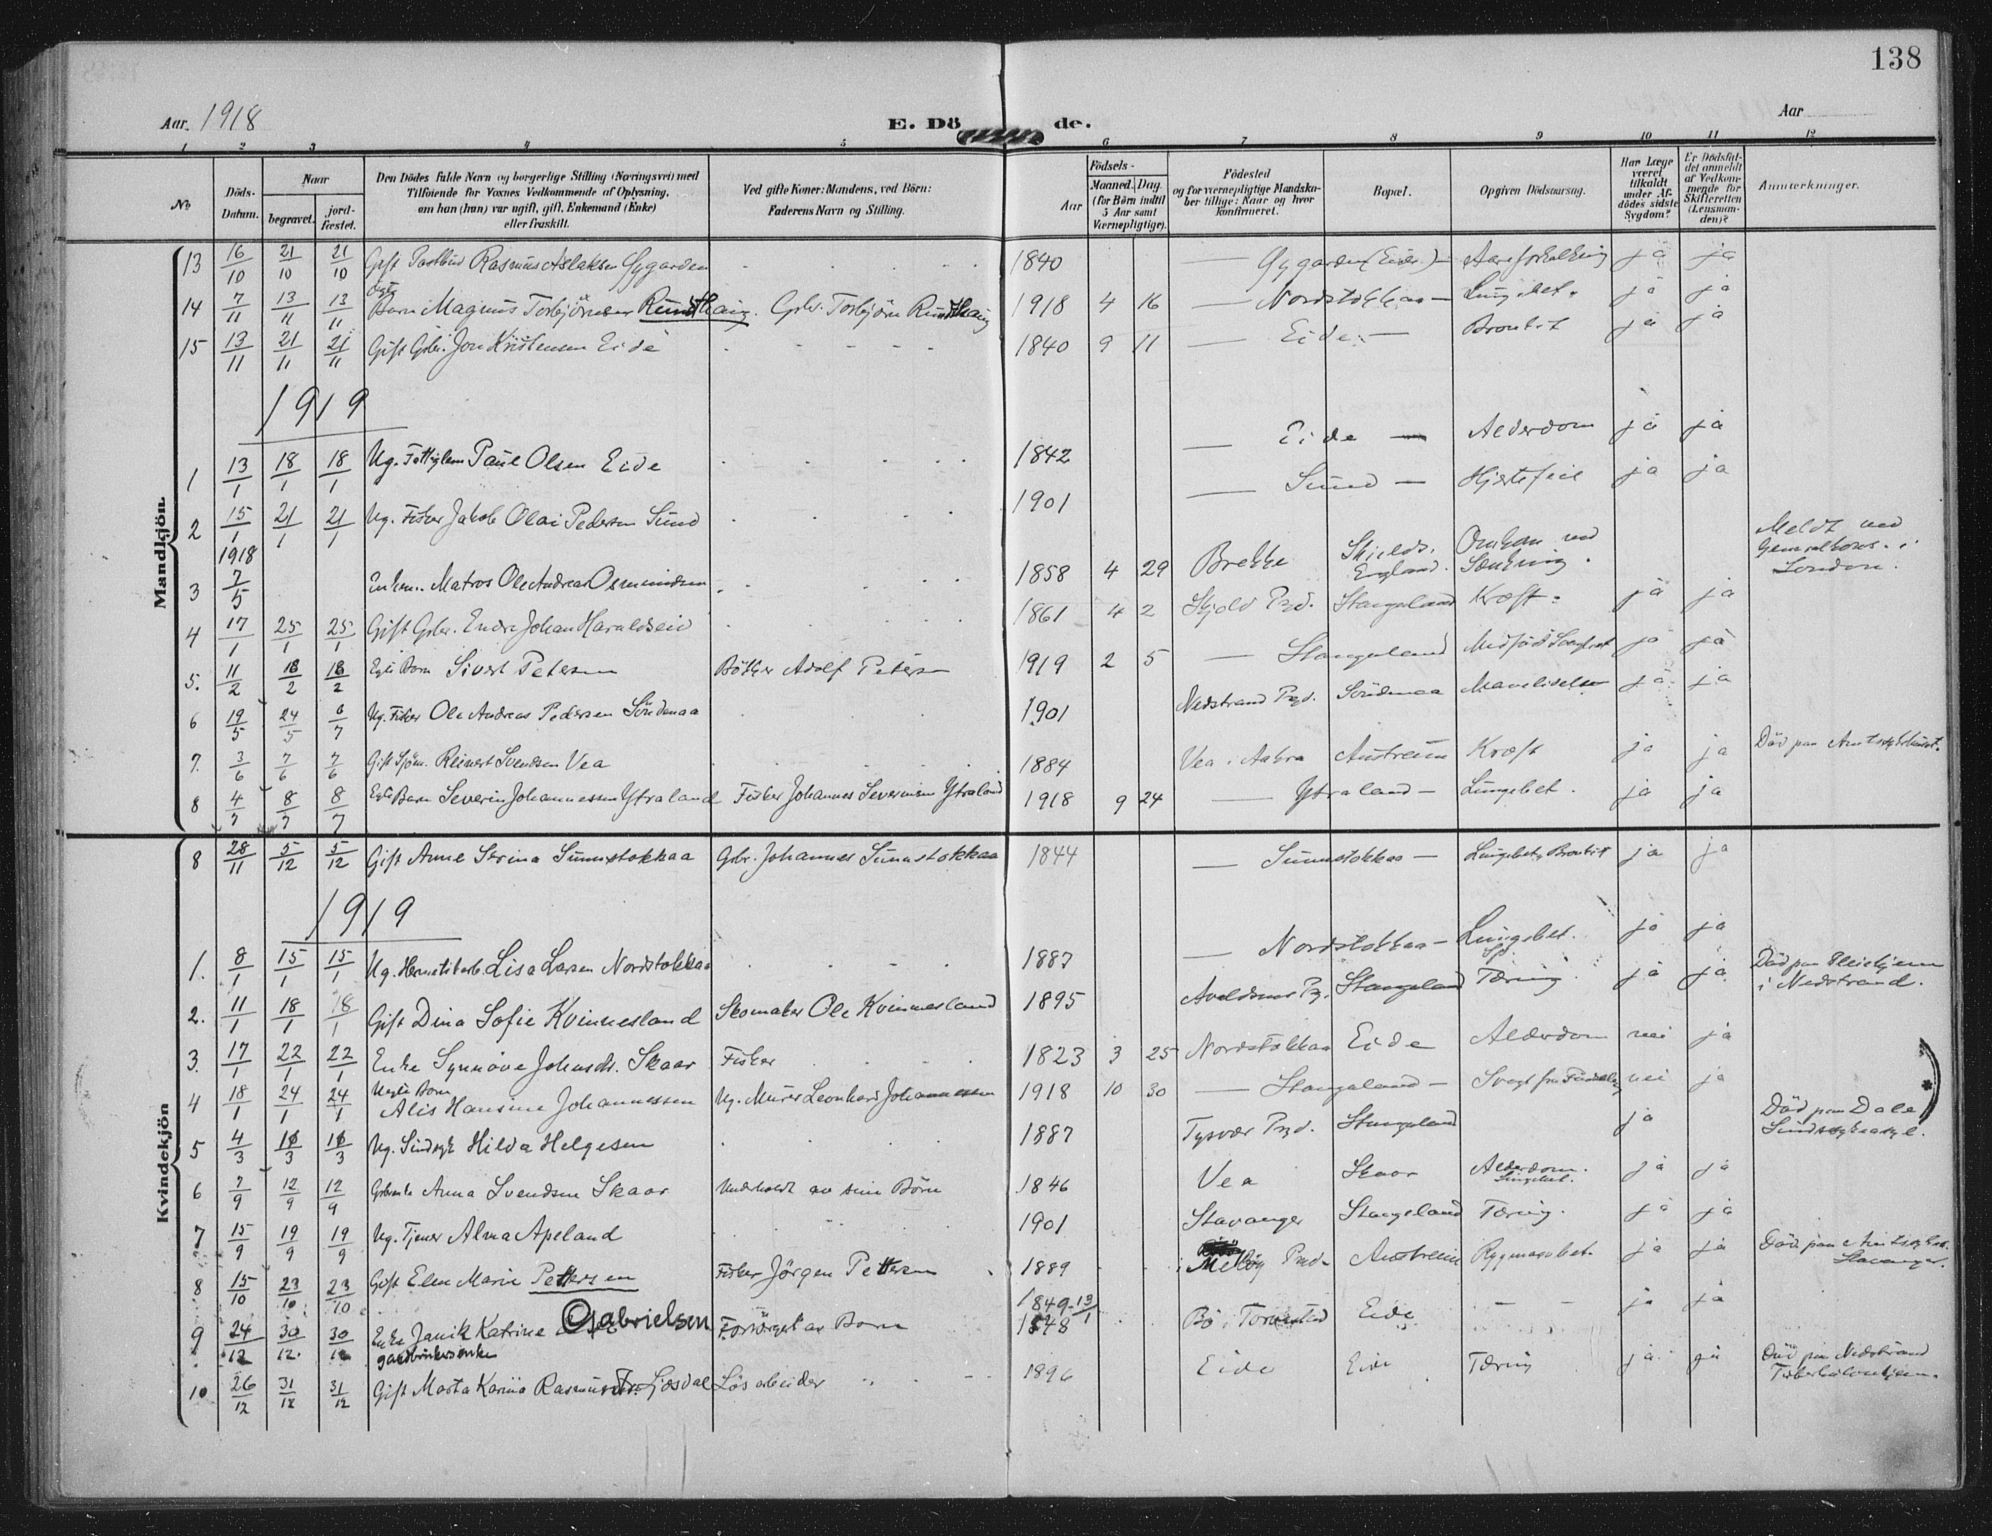 138
Aar. 1918 E. Dö de. Aar
1 2 3 4 5 6 7 8 9 10 11 12
No
Döds-Datum.
Naar
begravet.
jord-fæstet.
Den Dödes fulde Navn og borgerlige Stilling (Næringsvei) med
Tilföiende for Voxnes Vedkommende af Oplysning.
om han (hun) var ugift, gift, Enkemand (Enke)
eller fraskilt.
Ved gifte Koner: Mandens, ved Börn:
Faderens Navn og Stilling.
Födsels-
Aar
Maaned. Dag.
(for Börn indtil
5 Aar samt
Værnepligtige).
Födested
og for værnepligtige Mandska-
ber tillige: Naar og hvor
konfirmeret.
Bopæl.
Opgiven Dödsaarsag.
Har Læge
været
tilkaldt
under Af-
dödes sidste
Sygdom?
Er Dödsfal-
det anmeldt
af Vedkom-
mende for
Skifteretten
(Lensman-
den)?
Anmærkninger.
Mandkjön.
13 16/10 21/10 21/10 Gift Rasmus Aslaksen Gygarden 1840 — Gygarden (Eide) — Aareforkalkning ja ja
14 7/11 13/11 13/11 Egte Barn Magnus Torbjörnsen Rundthaug. Gbr. Torbjörn Rundthaug 1918 4 16 — Nordstokkaa — Lungebet. ja ja
15 13/11 21/11 21/11 Gift Gbr. Jon Kristensen Eide 1840 9 11 — Eide — Bronkit ja ja
1919
1 13/1 18/1 18/1 Ug. Fattiglem Paul Olsen Eide 1842 — Eide — Alderdom ja ja
2 15/1 21/1 21/1 Ug. Fisker Jakob Olai Pedersen Sund 1901 — Sund — Hjertefeil ja ja
3 1918 7/5 Enkem. Matros Ole Andreas Osmundsen 1858 4 29 Brekke Shields. England. Omkom ved Sænkning. Meldt ved Generalkons. i London.
4 17/1 25/1 25/1 Gift Gbr. Endre Johan Haraldseid 1861 4 2 Skjold Pgd. Stangeland Kræft. ja ja
5. 11/2 18/2 18/2 Egte Barn Sivert Petersen Bötker Adolf Petersen 1919 2 5 — Stangeland Medfödt Svaghet ja ja
6 19/5 24/5 6/7 Ug. Fisker Ole Andreas Pedersen Söndenaa 1901 Nedstrand Pgd. Söndenaa Mavelidelse ja ja
7. 3/6 7/6 7/6 Gift Sjöm. Reinert Svendsen Vea 1884 Vea i Aakra Austreim Kræft ja ja Död paa Amtssykehuset.
8 4/7 8/7 8/7 Egte Barn Severin Johannessen Ytraland Fisker Johannes Severinsen Ytraland 1918 9 24 — Ytraland — Lungebet. ja ja
Kvindekjön
8 28/11 5/12 5/12 Gift Anne Serina Sunnstokkaa Gbr. Johannes Sunnstokkaa 1844 — Sunnstokkaa — Lungebet. Bronkit ja ja
1919
1. 8/1 15/1 15/1 Ug. Hermetikarb. Lisa Larsen Nordstokkaa 1887 — Nordstokkaa — Lungebet. ja ja
2. 11/1 18/1 18/1 Gift Dina Sofie Kvinnesland Skomaker Ole Kvinnesland 1895 Avaldsnes Pg. Stangeland Tæring. ja ja Död paa Pleiehjem i Nedstrand.
3. 17/1 22/1 22/1 Enke Synnöve Johnsdt. Skaar Fisker 1823 3 25 Nordstokkaa Eide Alderdom nei ja
4 18/1 24/1 24/1 Uegte Barn Alis Hansine Johannessen Ug. Murer Leonhard Johannessen 1918 10 30 — Stangeland — Svagt fra Födselen nei ja
5 4/3 18/3 18/3 Ug. Sindsyk Hilda Helgesen 1887 Tysvær Pgd. Stangeland ja Död paa Dale Sindssykeasyl.
6 7/9 12/9 12/9 Anna Svendsen Skaar Underholdt av sine Börn 1846 Vea Skaar Alderdom. Lungebet. ja ja
7 15/9 19/9 19/9 Ug. Tjener Alma Apeland 1901 Stavanger Stangeland Tæring. ja ja
8 15/10 23/10 23/10 Gift Elen Marie Pettersen Fisker Jörgen Pettersen 1889 i Melöy Pgd. Austreim Rygmargsbet. ja ja Död paa Amtssykeh. Stavanger.
9 24/12 30/12 30/12 Enke Janik Katrine Gabrielsen gardbrukersenke Forsörget av Barn 1849-13/1 1848 Bö i Torvestad Eide — — ja ja
10 26/12 31/12 31/12 Gift Marta Karina Rasmusdtr. Gjesdal Lösarbeider 1896 Eide Eide Tæring ja. ja Död paa Nedstrand Tuberkulosehjem.